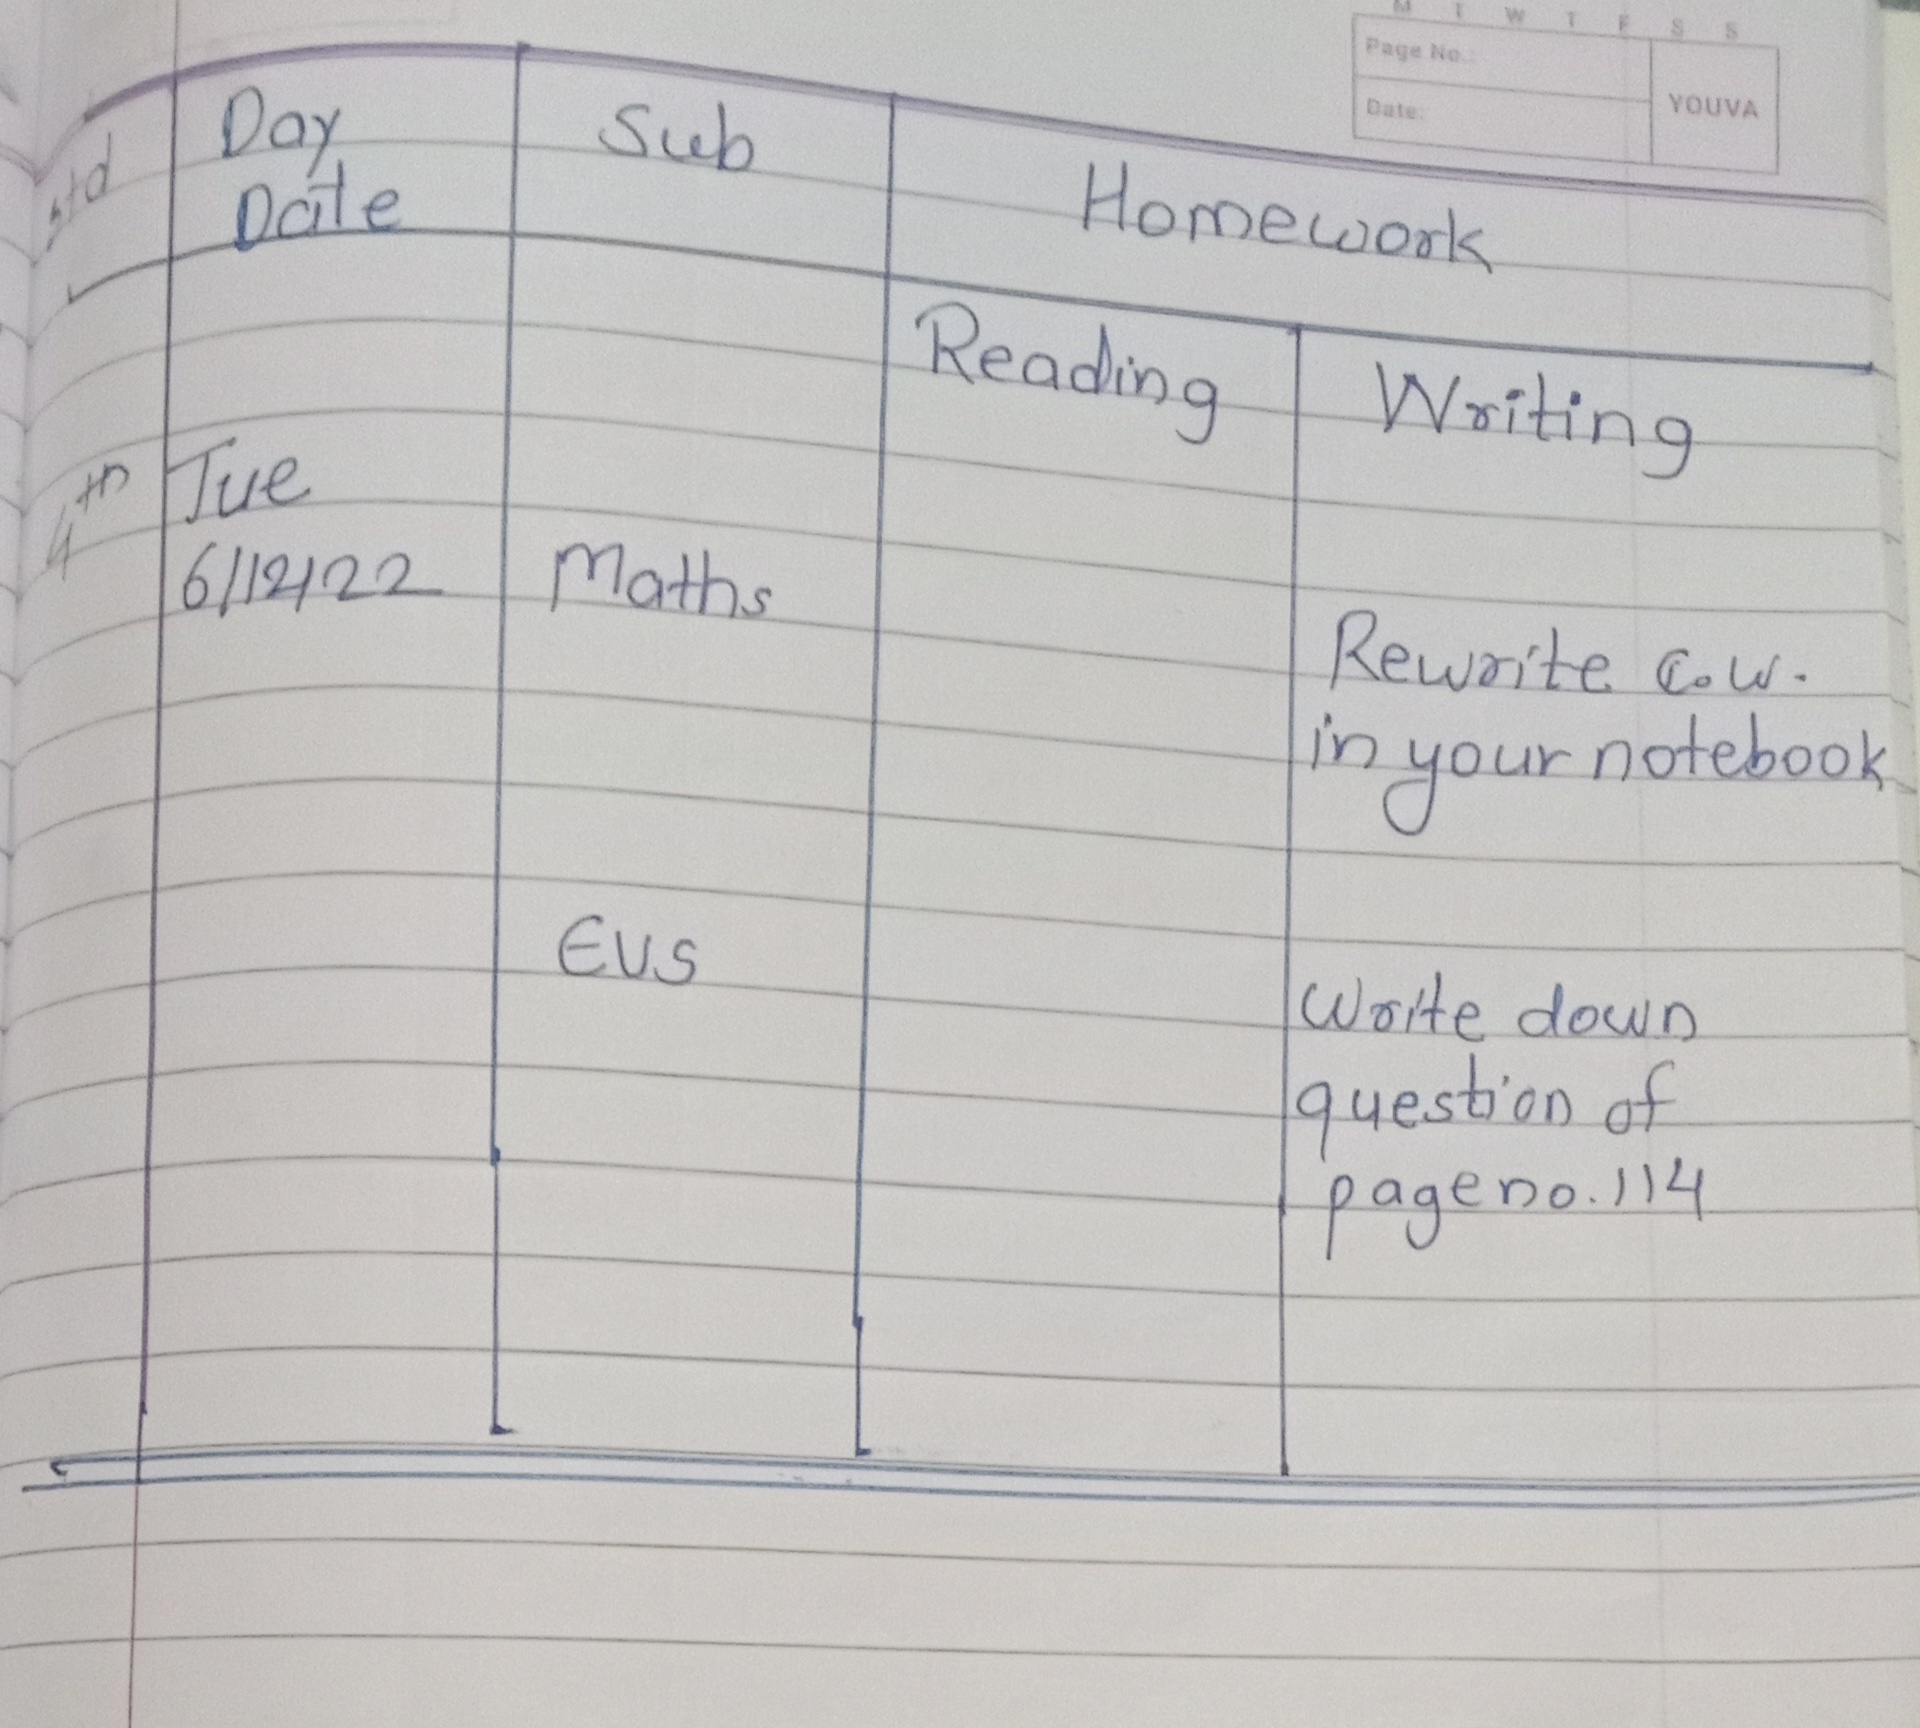 M T W T F S S
Page No.:
Date:
YOUVA
Std
Day
Date
Sub
Homework
Reading
Writing
4th
Tue
6/12/22
Maths
Rewrite C.W.
in your notebook
EVS
Write down
question of
page no. 114